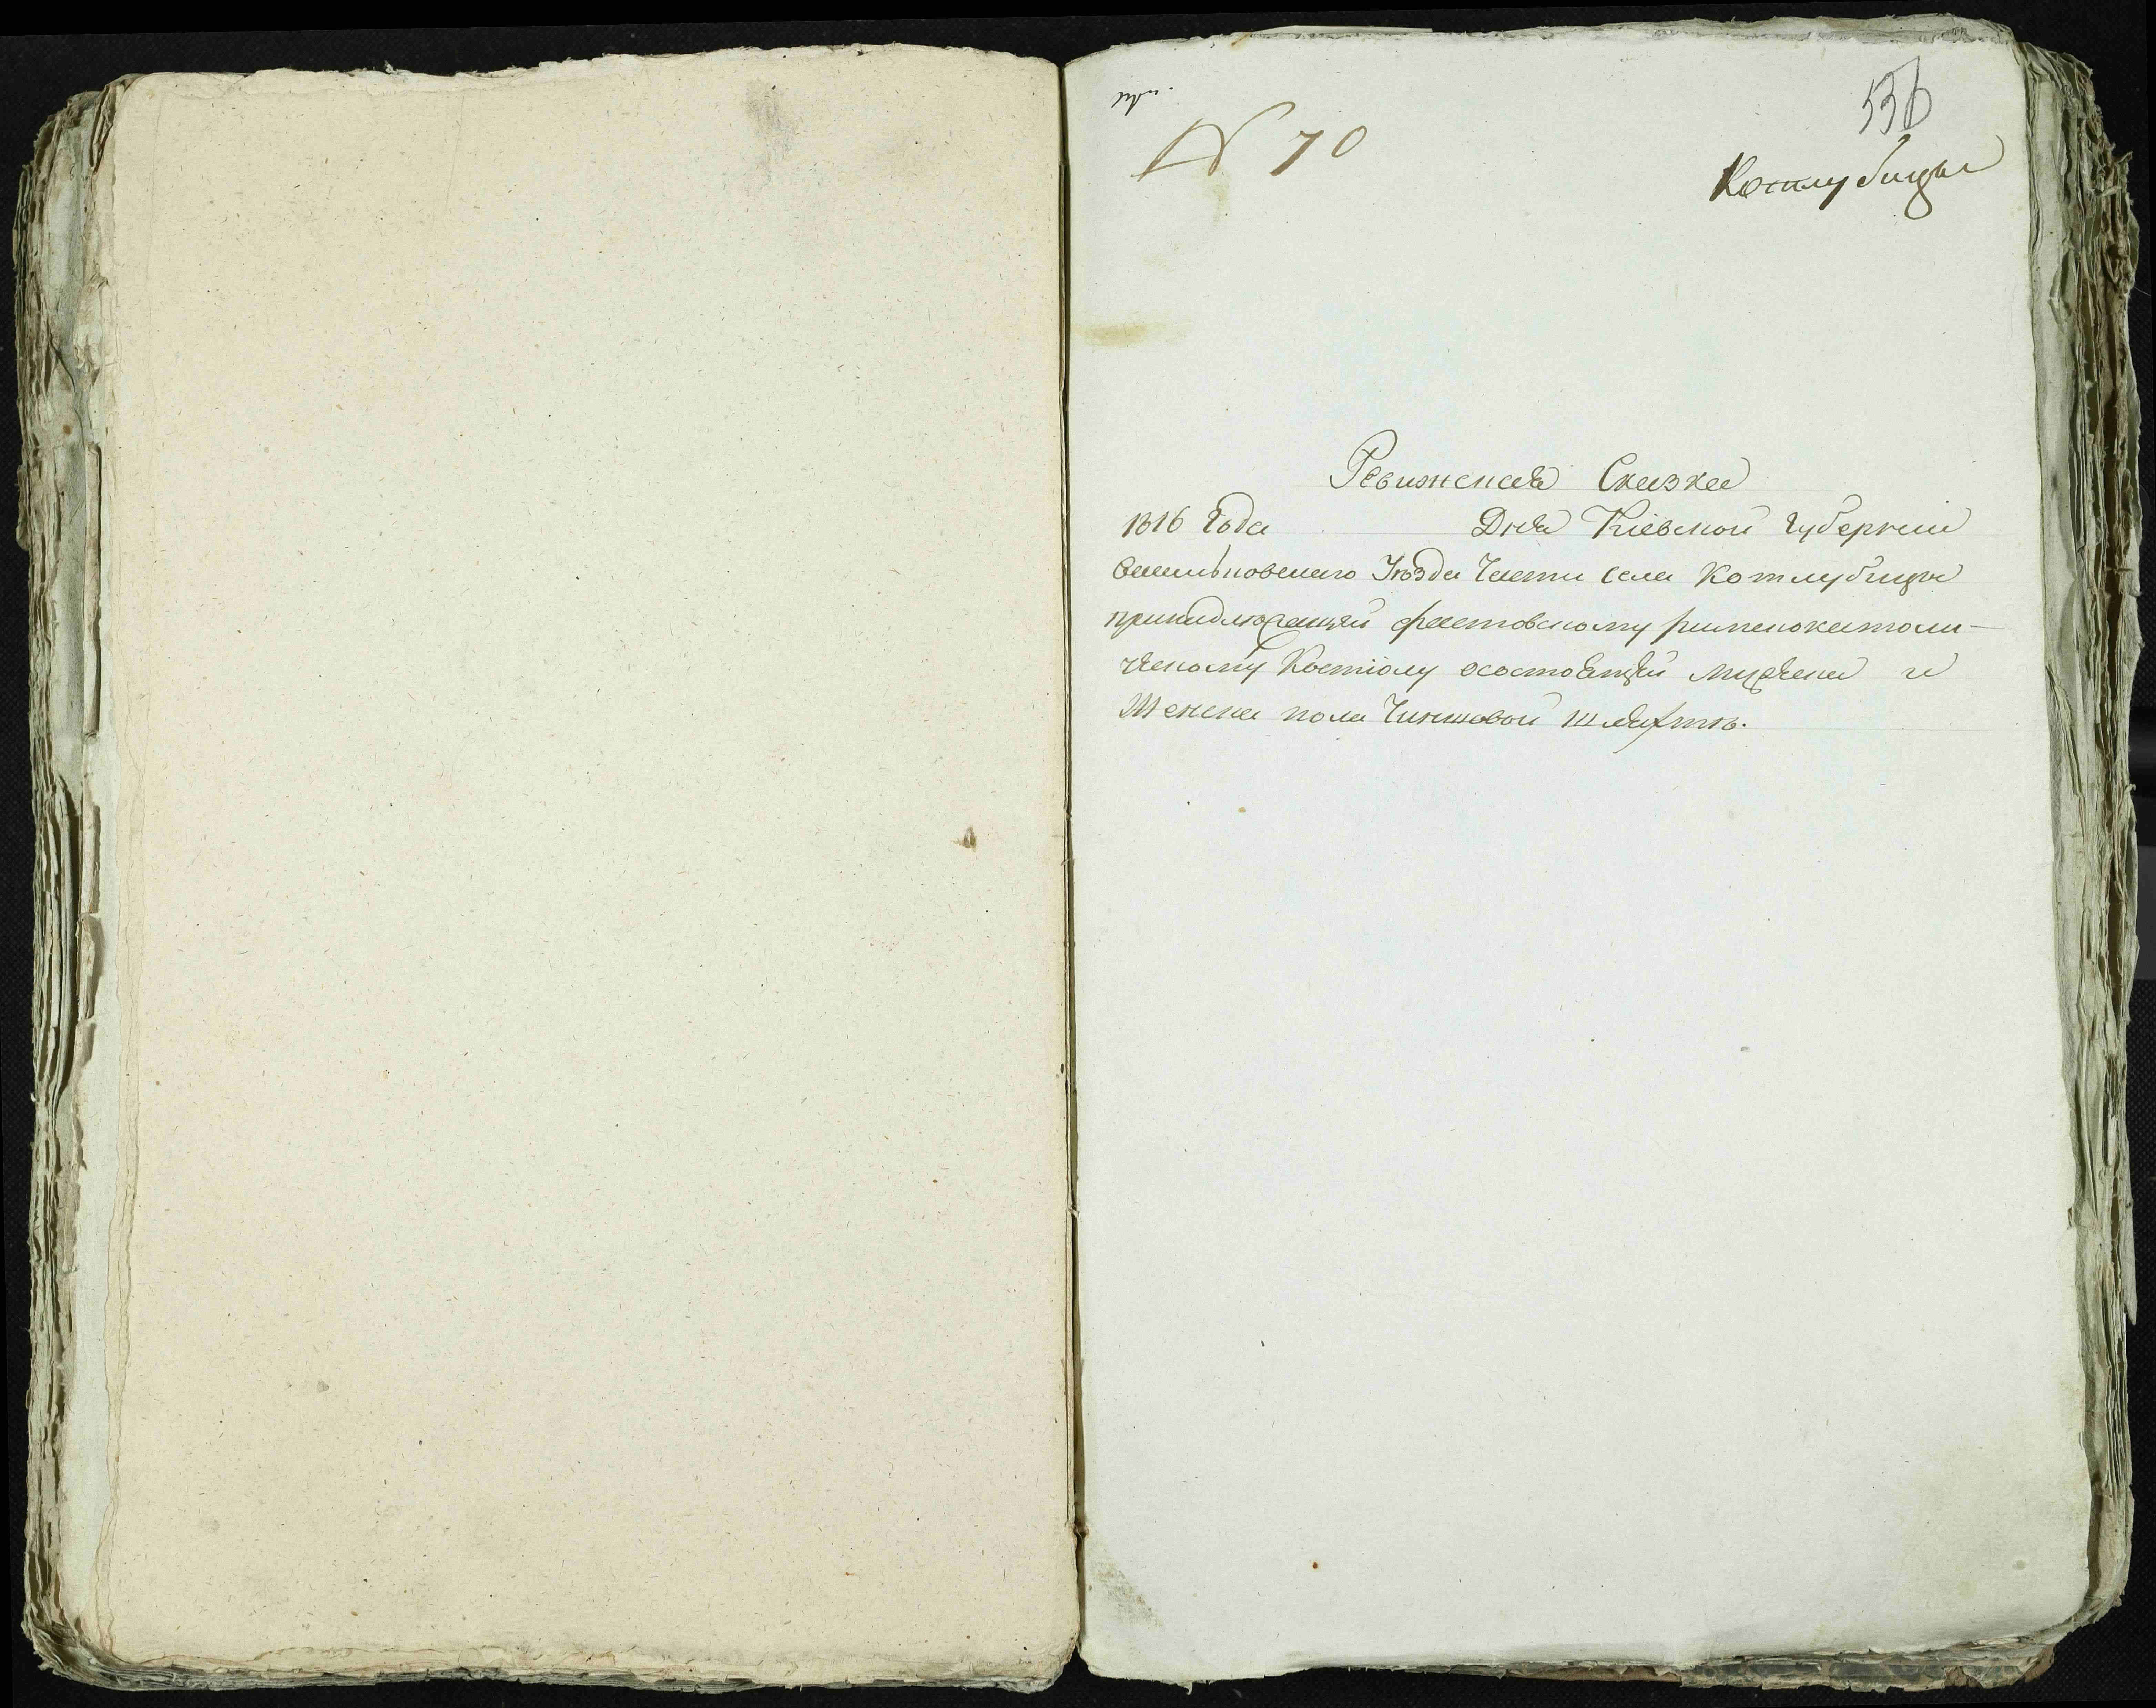 536
N 70
Котлубицы
Ревижская Сказка
1816 Года Дня Кіевской Губерніи
Васильковского Уѣзда Части села Котлубицы
принадлежащей фастовскому римскокатоли-
ческому Костіолу осостоящей мужеска и
Женска пола Чиншовой шляхтѣ.